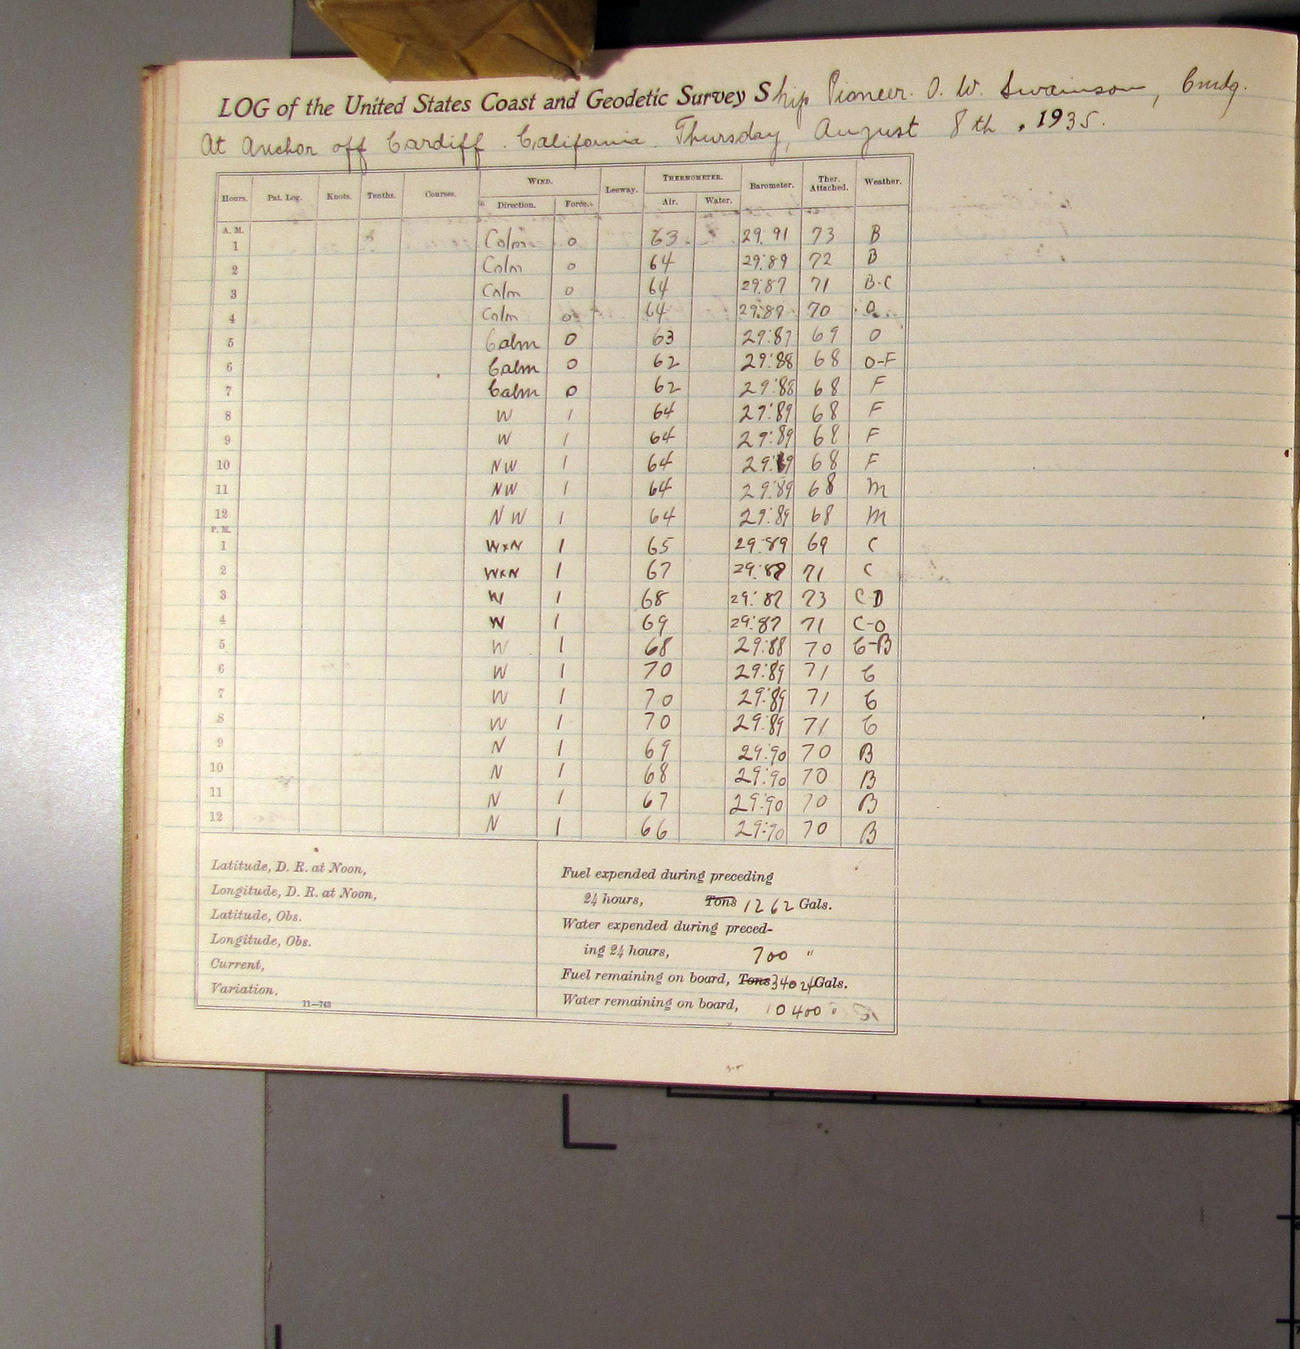 LOG of the United States Coast and Geodetic Survey Ship Pioneer. O. W. Swainson, Cmdg.
At Anchor off Cardiff. California. Thursday, August 8th, 1935.
Hours. Pat. Log. Knots. Tenths. Courses. WIND. Leeway. THERMOMETER. Barometer. Ther. Attached. Weather.
Direction. Force. Air. Water.
A. M.
1 Calm 0 63 29.91 73 B
2 Calm 0 64 29.89 72 B
3 Calm 0 64 29.87 71 B-C
4 Calm 0 64 29.87 70 O
5 Calm 0 63 29.87 69 O
6 Calm 0 62 29.88 68 O-F
7 Calm 0 62 29.88 68 F
8 W 1 64 29.89 68 F
9 W 1 64 29.89 68 F
10 NW 1 64 29.89 68 F
11 NW 1 64 29.89 68 M
12 NW 1 64 29.89 68 M
P. M.
1 WxN 1 65 29.89 69 C
2 WxN 1 67 29.88 71 C
3 W 1 68 29.87 73 C
4 W 1 69 29.87 71 C-O
5 W 1 68 29.88 70 C-B
6 W 1 70 29.89 71 C
7 W 1 70 29.89 71 C
8 W 1 70 29.89 71 C
9 N 1 69 29.90 70 B
10 N 1 68 29.90 70 B
11 N 1 67 29.90 70 B
12 N 1 66 29.90 70 B
Latitude, D. R. at Noon,
Longitude, D. R. at Noon,
Latitude, Obs.
Longitude, Obs.
Current,
Variation.
11—743
Fuel expended during preceding
24 hours, Tons 1262 Gals.
Water expended during preced-
ing 24 hours, 700 "
Fuel remaining on board, Tons 34024 Gals.
Water remaining on board, 10400 "